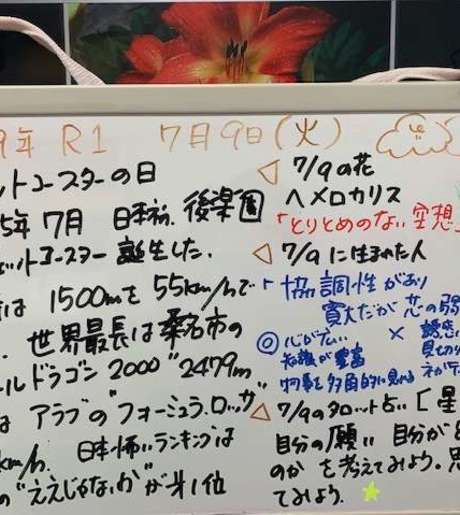 9年 R1 7月9日(火)
ットコースターの日
5年7月 日本初. 後楽園
ェットコースター 誕生した.
は 1500mを 55km/hで
世界最長は桑名市の
ールドラゴン 2000 "2479m
は アラブの "フォーミュラ.ロッサ
km/h. 日本怖いランキングは
の "ええじゃないか" が 第1位
◁ 7/9の花
ヘメロカリス
「とりとめのない空想
◁ 7/9 に生まれた人
「協調性があり
寛大だが 芯の弱
◎ 心が広い
知識が豊富
物事を多角的に見れる
×
◁ 7/9のタロット占い [星
自分の願い 自分が
のか を考えてみよう. 思
てみよう.